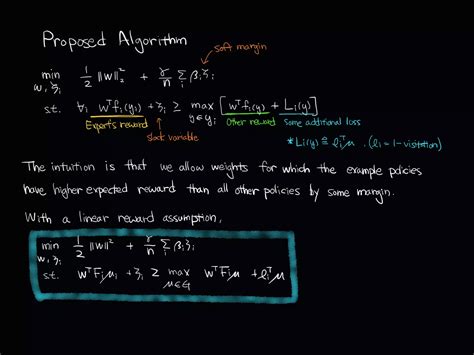 Proposed Algorithm
soft margin
min w, ξi 1/2 ||w||²₂ + γ/n Σi βi ξi
s.t. ∀i wᵀfi(yi) + ξi ≥ max y∈yi [wᵀfi(y) + Li(y)]
Expert's reward Other reward Some additional loss
slack variable
* Li(y) ≅ liᵀμ . (li = 1-visitation)
The intuition is that we allow weights for which the example policies
have higher expected reward than all other policies by some margin.
With a linear reward assumption,
min w, ξi 1/2 ||w||² + γ/n Σi βi ξi
s.t. wᵀFiμi + ξi ≥ max μ∈Gi wᵀFiμ + liᵀμ